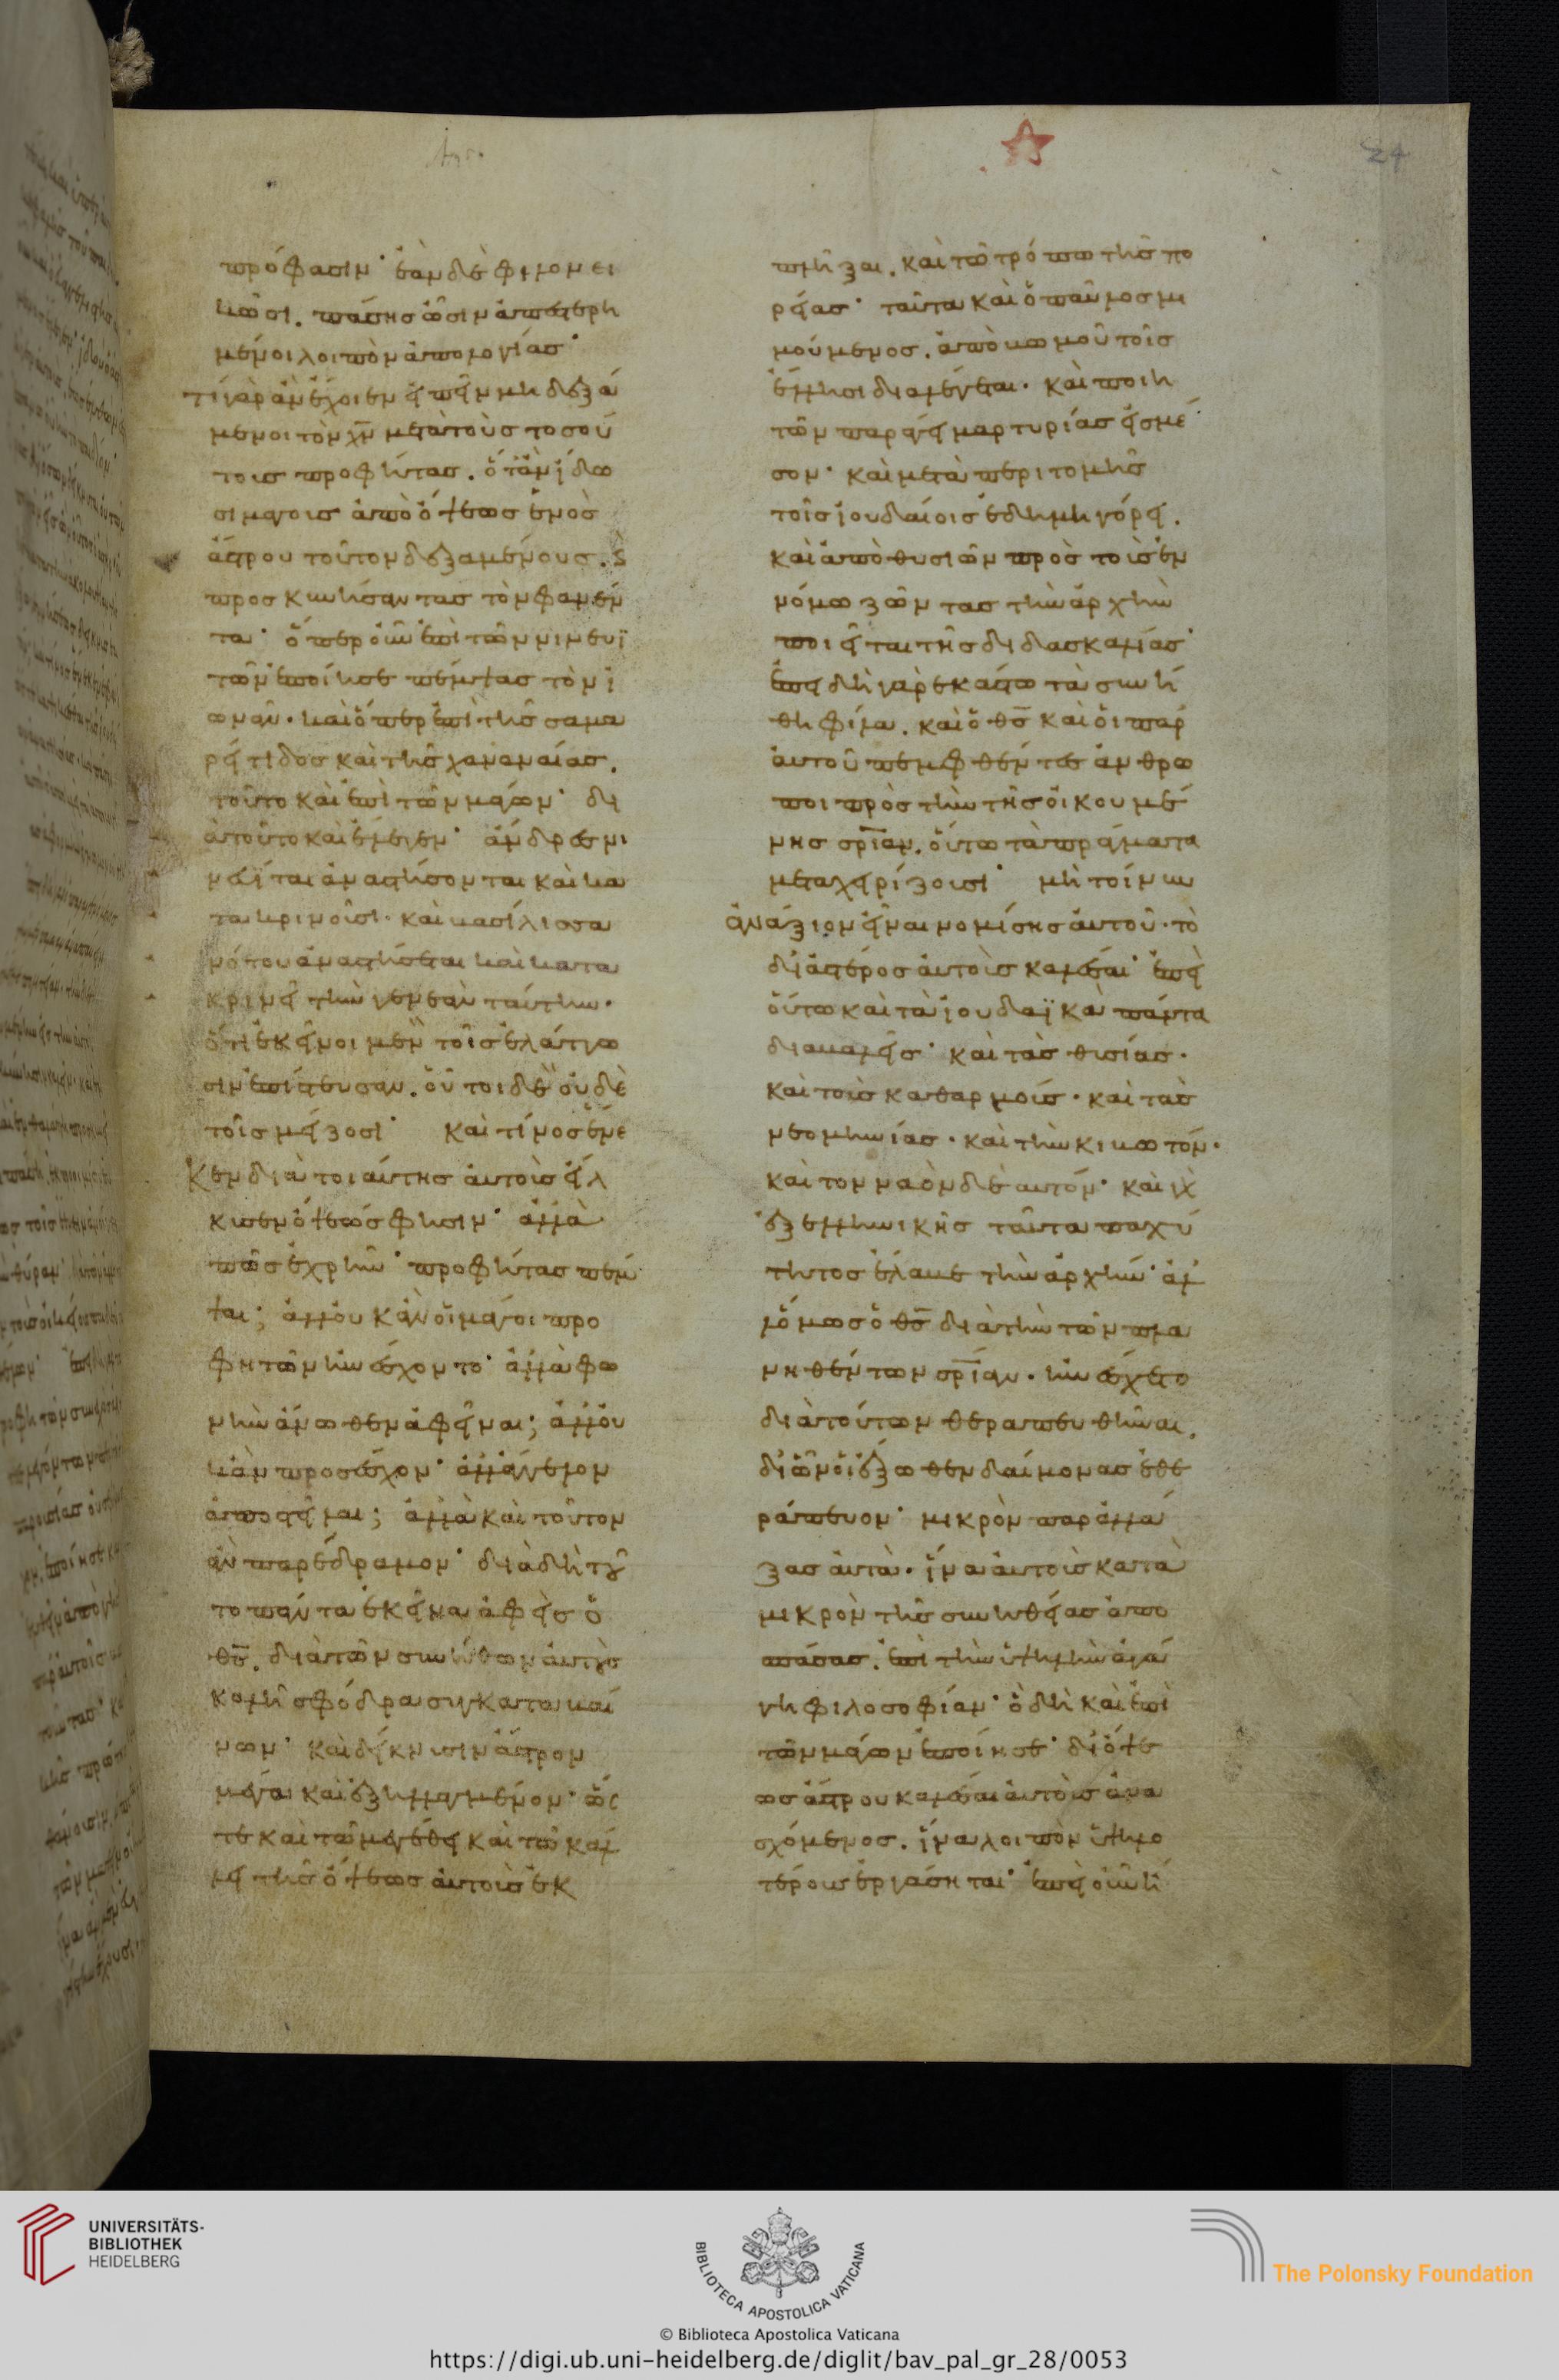 πρόφασιν· ἐὰν δὲ φιλονει
κῶσι. πάσης ὦσιν ἀπεστερη
μένοι λοιπὸν ἀπολογίας·
τί γὰρ ἂν ἔχοιεν εἰπεῖν μὴ δεξά
μενοι τὸν χν̄ μετὰ τοὺς τοσού
τους προφήτας. ὅτἂν ἴδω
σι μάγους ἀπὸ ὄψεως ἑνὸς
ἄστρου τοῦτον δεξαμένους. ϗ
προσκυνήσαντας τὸν φανέν
τα· ὅπερ οὖν ἐπὶ τῶν νινευϊ
τῶν ἐποίησε πέμψας τὸν ἰ
ωνᾶν. καὶ ὅπερ ἐπὶ τῆς σαμα
ρείτιδος καὶ τῆς χαναναίας.
τοῦτο καὶ ἐπὶ τῶν μάγων· δι
ὰ τοῦτο καὶ ἔλεγεν· ἄνδρες νι
νευῖται ἀναστήσονται καὶ κα
τακρινοῦσι· καὶ βασίλισσα
νότου ἀναστήσεται καὶ κατα
κρινεῖ τὴν γενεὰν ταύτην·
ὅτι ἐκεῖνοι μὲν τοῖς ἐλάττω
σιν ἐπίστευσαν. οὗτοι δὲ οὐδὲ
τοῖς μείζοσι· καὶ τίνος ἕνε
κεν διὰ τοιαύτης αὐτοὺς εἵλ
κυσεν ὄψεώς φησιν· ἀλλὰ
πῶς ἐχρῆν· προφήτας πέμ
ψαι; ἀλλ' οὐκ ἂν οἱ μάγοι προ
φητῶν ἠνέσχοντο· ἀλλὰ φω
νὴν ἄνωθεν ἀφεῖναι; ἀλλ' οὐ
κἂν προσέσχον· ἀλλ' ἄγγελον
ἀποστεῖλαι; ἀλλὰ καὶ τοῦτον
ἂν παρέδραμον· διὰ δὴ τοῦ
το πάντα ἐκεῖνα ἀφεὶς ὁ
θς̄. διὰ τῶν συνήθων αὐτοὺς
καλεῖ σφόδρα συγκαταβαί
νων· καὶ δείκνυσιν ἄστρον
μέγα καὶ ἐξηλλαγμένον· ὥσ
τε καὶ τῶ μεγέθει καὶ τῶ κάλ
λει τῆς ὄψεως αὐτοὺς ἐκ
24
πλῆξαι. καὶ τῶ τρόπω τῆς πο
ρείας· ταῦτα καὶ ὁ παῦλος μι
μούμενος. ἀπὸ βωμοῦ τοῖς
ἕλλησι διαλέγεται. καὶ ποιη
τῶν παράγει μαρτυρίας εἰς μέ
σον· καὶ μετὰ περιτομῆς
τοῖς ἰουδαίοις ἐδημηγόρει.
καὶ ἀπὸ θυσιῶν πρὸς τοὺς ἐν
νόμω ζῶντας τὴν ἀρχὴν
ποιεῖται τῆς διδασκαλίας·
ἐπειδὴ γὰρ ἑκάστω τὰ συνή
θη φίλα. καὶ ὁ θς̄ καὶ οἱ παρ'
αὐτοῦ πεμφθέντες ἄνθρω
ποι πρὸς τὴν τῆς οἰκουμέ
νης σρ̄ίαν. οὕτω τὰ πράγματα
μεταχειρίζουσι· μὴ τοίνυν
ἀνάξιον εἶναι νομίσης αὐτοῦ· τὸ
δι' ἀστέρος αὐτοὺς καλέσαι· ἐπεὶ
οὕτω καὶ τὰ ἰουδαϊκὰ πάντα
διαβαλεῖς· καὶ τὰς θυσίας.
καὶ τοὺς καθαρμούς. καὶ τὰς
νεομηνίας. καὶ τὴν κιβωτόν.
καὶ τὸν ναὸν δὲ αὐτόν· καὶ γὰρ
ἐξ ἑλληνικῆς ταῦτα παχύ
τητος ἔλαβε τὴν ἀρχήν· ἀλ
λ' ὅμως ὁ θς̄ διὰ τὴν τῶν πλα
νηθέντων σρ̄ίαν. ἠνέσχετο
διὰ τούτων θεραπευθῆναι.
δι' ὧν οἱ ἔξωθεν δαίμονας ἐθε
ράπευον· μικρὸν παραλλά
ξας αὐτὰ. ἵνα αὐτοὺς κατὰ
μικρὸν τῆς συνηθείας ἀπο
σπάσας. ἐπὶ τὴν ὑψηλὴν ἀγά
γη φιλοσοφίαν· ὃ δὴ καὶ ἐπὶ
τῶν μάγων ἐποίησε· δι' ὄψε
ως ἄστρου καλέσαι αὐτοὺς ἀνα
σχόμενος. ἵνα λοιπὸν ὑψηλο
τέρους ἐργάσηται· ἐπεὶ οὖν ἤ
UNIVERSITÄTS-
BIBLIOTHEK
HEIDELBERG
BIBLIOTECA APOSTOLICA VATICANA
The Polonsky Foundation
© Biblioteca Apostolica Vaticana
https://digi.ub.uni-heidelberg.de/diglit/bav_pal_gr_28/0053